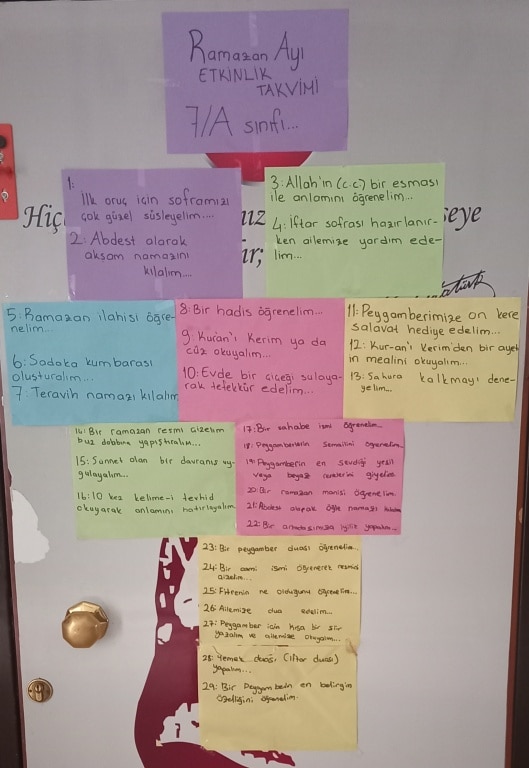 Ramazan Ayı
ETKİNLİK
TAKVİMİ
7/A sınıfı...
1:
İlk oruç için soframızı
çok güzel süsleyelim....
2: Abdest alarak
akşam namazını
kılalım....
3: Allah'ın (c.c) bir esması
ile anlamını öğrenelim...
4: İftar sofrası hazırlanır-
ken ailemize yardım ede-
lim...
Hiç
seye
5: Ramazan ilahisi öğre-
nelim...
6: Sadaka kumbarası
oluşturalım...
7: Teravih namazı kılalım
8: Bir hadis öğrenelim...
9: Kuran'ı Kerim ya da
cüz okuyalım...
10: Evde bir çiçeği sulaya-
rak tefekkür edelim...
11: Peygamberimize on kere
salavat hediye edelim...
12: Kur-an'ı Kerim'den bir ayet
in mealini okuyalım...
13: Sahura kalkmayı dene-
yelim...
14: Bir ramazan resmi çizelim
buz dobbına yapıştıralım...
15: Sünnet olan bir davranış uy-
gulayalım...
16: 10 kez kelime-i tevhid
okuyarak anlamını hatırlayalım
17: Bir sahabe ismi öğrenelim...
18: Peygamberimin Şemailini öğrenelim
19: Peygamberin en sevdiği yeşil
veya beyaz renklerini giyelim
20: Bir ramazan manisi öğrenelim
21: Abdest alarak öğle namazı kılalım
22: Bir arkadaşımıza iyilik yapalım...
23: Bir peygamber duası öğrenelim...
24: Bir cami ismi öğrenerek resmini
çizelim...
25: Fitrenin ne olduğunu öğrenelim...
26: Ailemize dua edelim...
27: Peygamber için kısa bir şiir
yazalım ve ailemize okuyalım...
28: Yemek duası, (iftar duası)
yapalım...
29: Bir Peygamberin en belirgin
özelliğini öğrenelim.